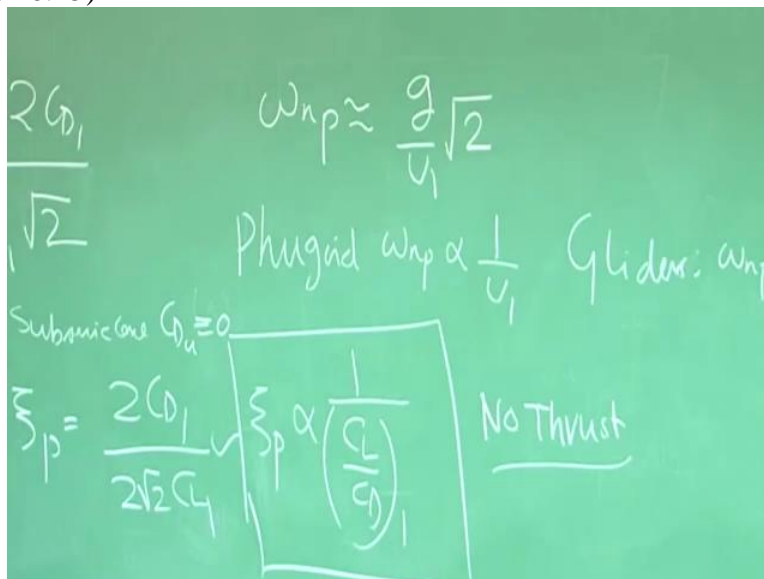 2C_{D_1}
√2
ω_{n_p} ≈ g/U_1 √2
Phugoid ω_{n_p} ∝ 1/U_1 Gliders: ω_{n_p}
Subsonic Case C_{D_u} ≡ 0
ξ_p = 2C_{D_1}/2√2 C_{L_1} ξ_p ∝ 1/(C_L/C_D)_1 No Thrust